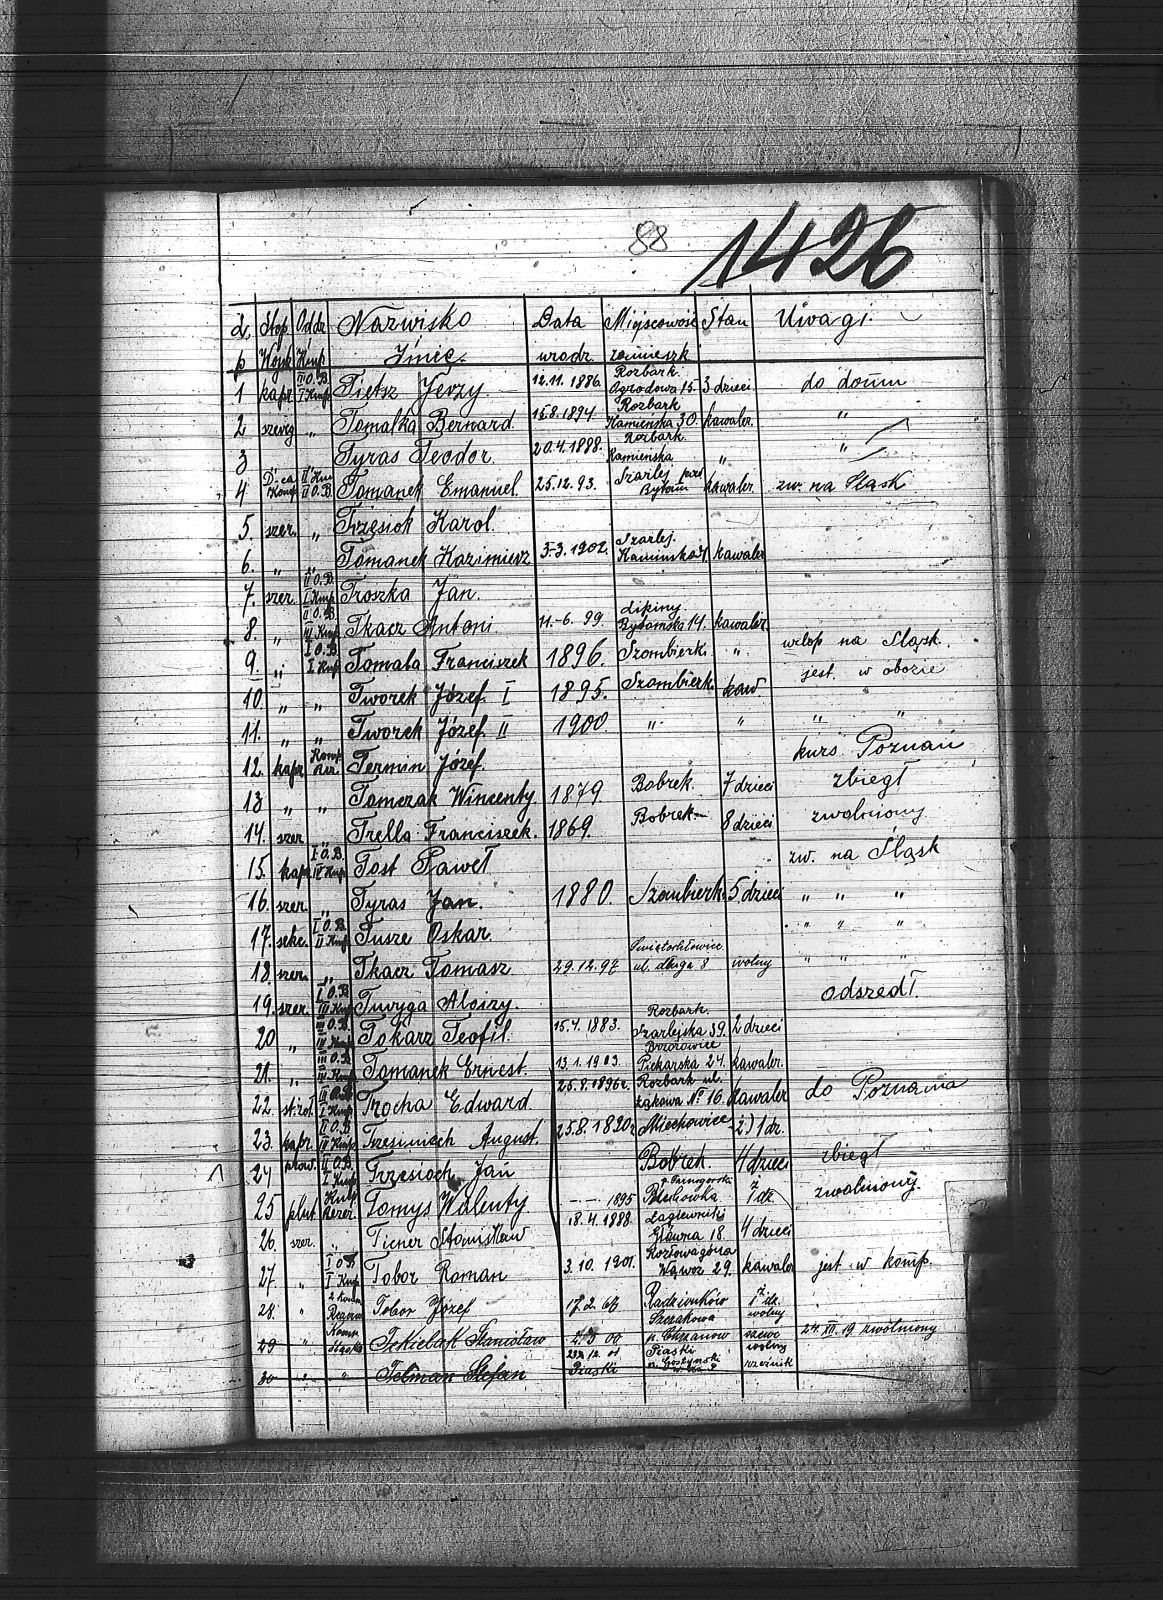 88
1426
L. Stop Oddz Nazwisko Data Miejscowość Stan Uwagi.
p Wojsk Kmp Imię. urodz. zamieszk
1 kapr III O.B. I Kmp Tietsz Jerzy 12.11.1886. Rozbark. Ogrodowa 15 3 dzieci do domu
2 szereg „ Tomalka Bernard 15.8.1894 Rozbark Kamieńska 30. kawaler. „
3 Tyras Teodor. 20.4.1888. Rozbark. Kamieńska „ „
4 D-ca II O.B. Tomanek Emanuel. 25.12.93. Szarlej Bytom kawaler zw. na Śląsk
5 szer. „ Trzęsiok Karol.
6. „ Tomanek Kazimierz 3.3.1902. Szarlej. kawaler
7. szer II O.B. I Kmp Troszka Jan.
8. „ II O.B. III Kmp Tkacz Antoni. 11.-6. 99. Bytomska 14. kawaler
9. „ I O.B. I Kmp Tomala Franciszek 1896. Szombierk. „ urlop na Śląsk.
10. „ „ Tworek Józef I 1895. Szombierk. kaw jest w obozie
11. „ „ Tworek Józef II 1900. „ „ „ „
12. kapr Komp Termin Józef. kurs Poznań
13 „ „ Tomczak Wincenty 1879 Bobrek. 7 dzieci zbiegł
14. szer Trella Franciszek. 1869. Bobrek 8 dzieci zwolniony
15. kapr I O.B. IV Kmp Tost Paweł zw. na Śląsk
16. szer „ Tyras Jan. 1880. Szombierk. 5 dzieci „ „ „
17. sekc. I O.B. II Kmp Tusze Oskar. „ „ „
18. szer „ Tkacz Tomasz 29.12.97 Świętochłowice ul. długa 8 wolny „ „ „
19. szer. I O.B. III Kmp Tuvyga Alojzy. odszedł.
20 „ III O.B. Tokarz Teofil. 15.4.1883. Rozbark. Szarlejska 39. 2 dzieci
21. „ III O.B. III Kmp Tomanek Ernest. 13.1.1903. Brzozowice Piekarska 24. kawaler.
22. II O.B. I Kmp Trocha Edward 25.8.1896r. Rozbark ul. Łąkowa № 16. kawaler do Poznania
23. kapr II O.B. August. 25.8. Miechowice 2) 1 dz.
24 II O.B. I Kmp Trzesioch Jan Bobrek. 4 dzieci zbiegł
25 plut Kmp Rezer. Tomys Walenty - - 1895 p. Tarnogórski ż 1 dz. zwolniony.
26. szer. „ Ticner Stanisław 18.4.1888 Łagiewniki Główna 18. 4 dzieci
27. „ I O.B. I Kmp Tobor Roman 3.10.1901. Kozłowagóra 29. kawaler jest w komp.
28. „ Tobor Józef 17.2.67 Radzionków ż 1 dz.
29 „ Komp Tekielak Stanisław 2/3 00 Szczakowa p. Chrzanów wolny szewc 24.XII.19 zwolniony
30 „ „ Telman Stefan 12. 01 Piaski Piaski wolny rzeźnik